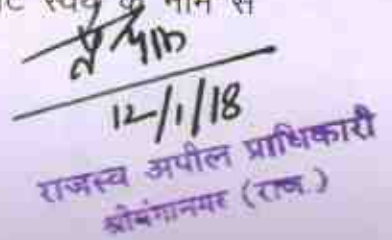 स्वयं के नाम से
12/1/18
राजस्व अपील प्राधिकारी
श्रीगंगानगर (राज.)